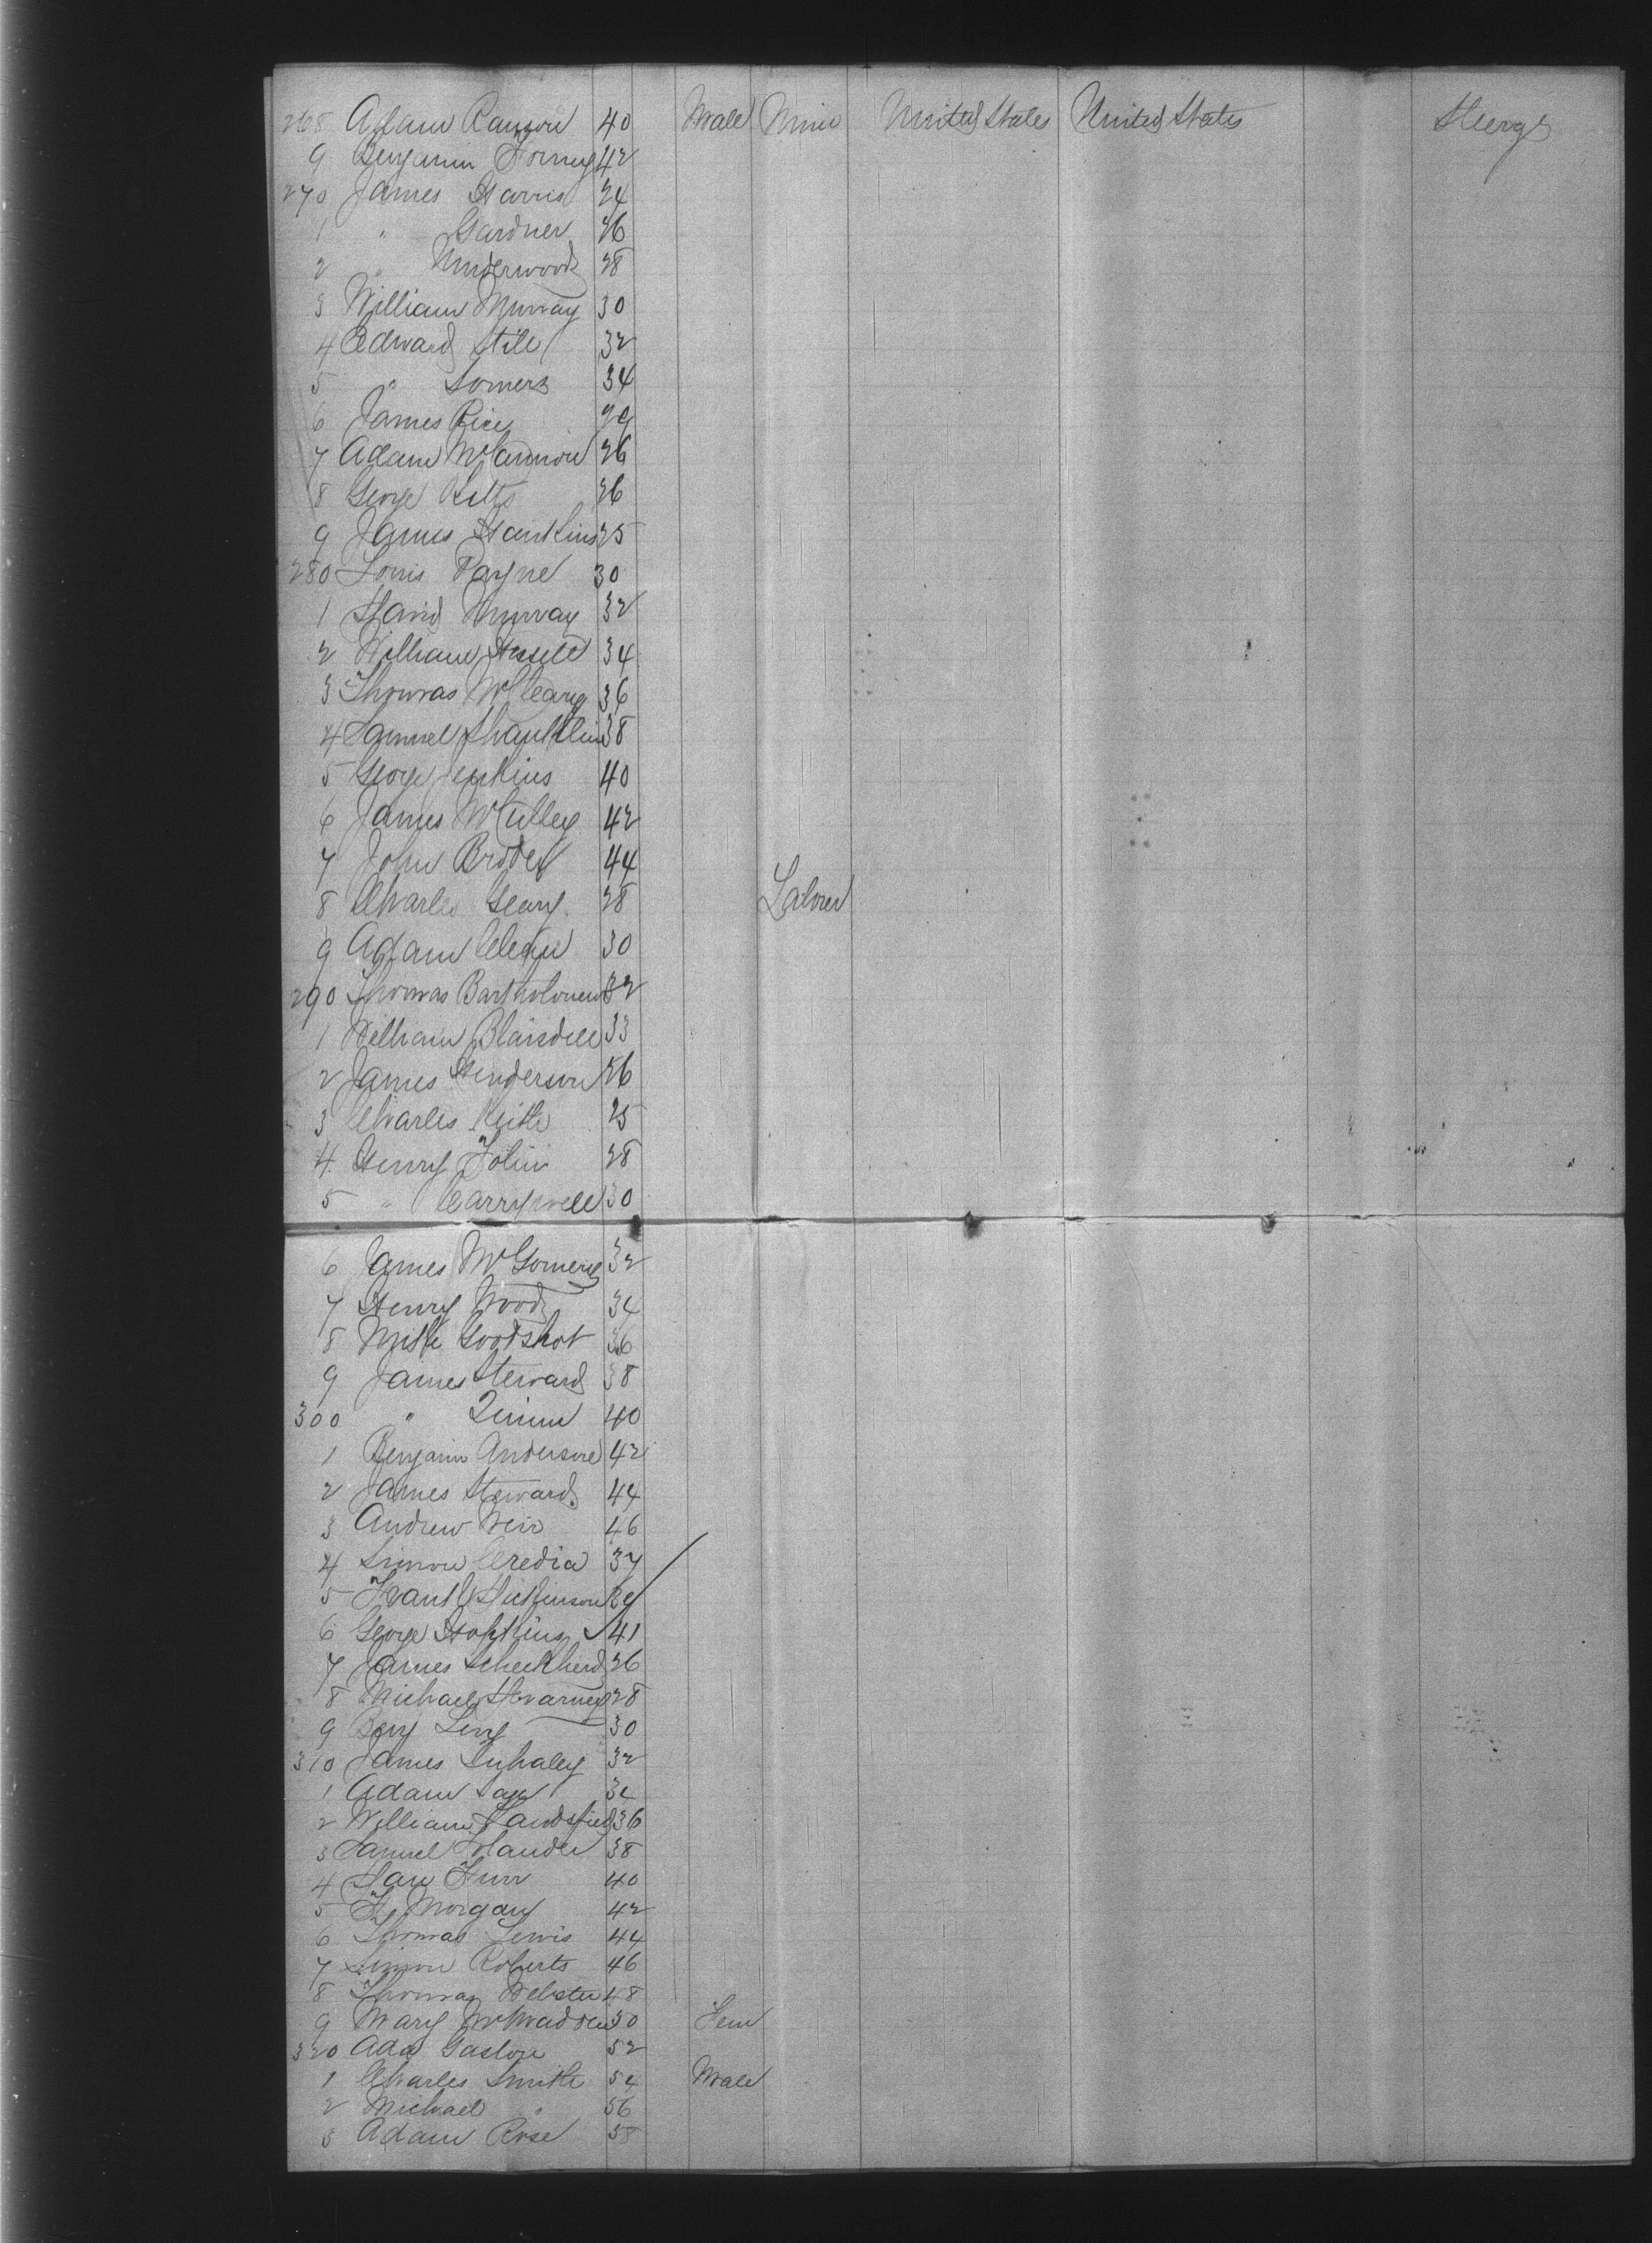 268 Adam Ranson 40 Male Miner United States United States Steerge
9 Benjamin Forney 42
270 James Harris 24
1 " Gardner 26
2 " Underwood 28
3 William Murray 30
4 Edward Stile 32
5 " Somers 34
6 James Rice 29
7 Adam McCannon 26
8 George Kelts 26
9 James Hankins 25
280 Louis Payne 30
1 David Murray 32
2 William 34
3 Thomas McCleary 36
4 Samuel Shanklin 38
5 George Jenkins 40
6 James McCulley 42
7 John Broder 44
8 Charles Geary 28 Laborer
9 Adam Clean 30
290 Thomas Bartholomew 32
1 William Blaisdell 33
2 James Henderson 26
3 Charles Keith 25
4 Henry Folin 28
5 " Carrywell 30
6 James McGomery 32
7 Henry Wood 34
8 Mike Goodshot 36
9 James Steward 38
300 " Quinn 40
1 Benjamin Anderson 42
2 James Steward 44
3 Andrew Weir 46
4 Simon Credia 37
5 Frank Dickinson 29
6 George Hopkins 41
7 James Scheckherd 26
8 Michael 28
9 Benj Levy 30
310 James 32
1 Adam 34
2 William Handsfield 36
3 Samuel 38
4 Furr 40
5 H Morgan 42
6 Thomas Lewis 44
7 Simon Roberts 46
8 Thomas Webster 48
9 Mary McMadden 50 Fem
320 Ada Gaston 52
1 Charles Smith 54 Male
2 Michael " 56
3 Adam Rose 58